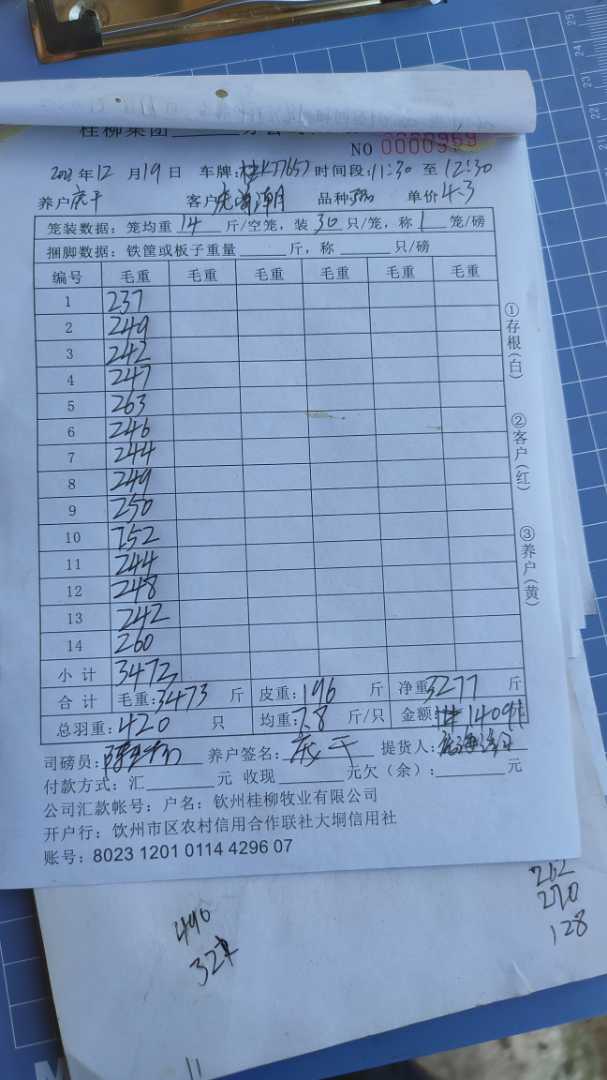 桂柳集团
NO 0000959
12 月 19 日 车牌: 时间段: 11:30 至 12:30
养户 庆干 客户 品种 单价 4.3
笼装数据: 笼均重 14 斤/空笼, 装 30 只/笼, 称 1 笼/磅
捆脚数据: 铁筐或板子重量 斤, 称 只/磅
编号 毛重 毛重 毛重 毛重 毛重 毛重
1 237
2 249
3 242
4 247
5 263
6 246
7 244
8 249
9 250
10 252
11 244
12 248
13 242
14 260
小 计 3473
合 计 毛重: 3473 斤 皮重: 196 斤 净重 3277 斤
总羽重: 420 只 均重: 7.8 斤/只 金额: 14091
司磅员: 养户签名: 庆干 提货人:
付款方式: 汇 元 收现 元欠(余): 元
公司汇款帐号: 户名: 钦州桂柳牧业有限公司
开户行: 钦州市区农村信用合作联社大垌信用社
账号: 8023 1201 0114 4296 07
①存根(白)
②客户(红)
③养户(黄)
496
262
270
128
25
24
23
22
21